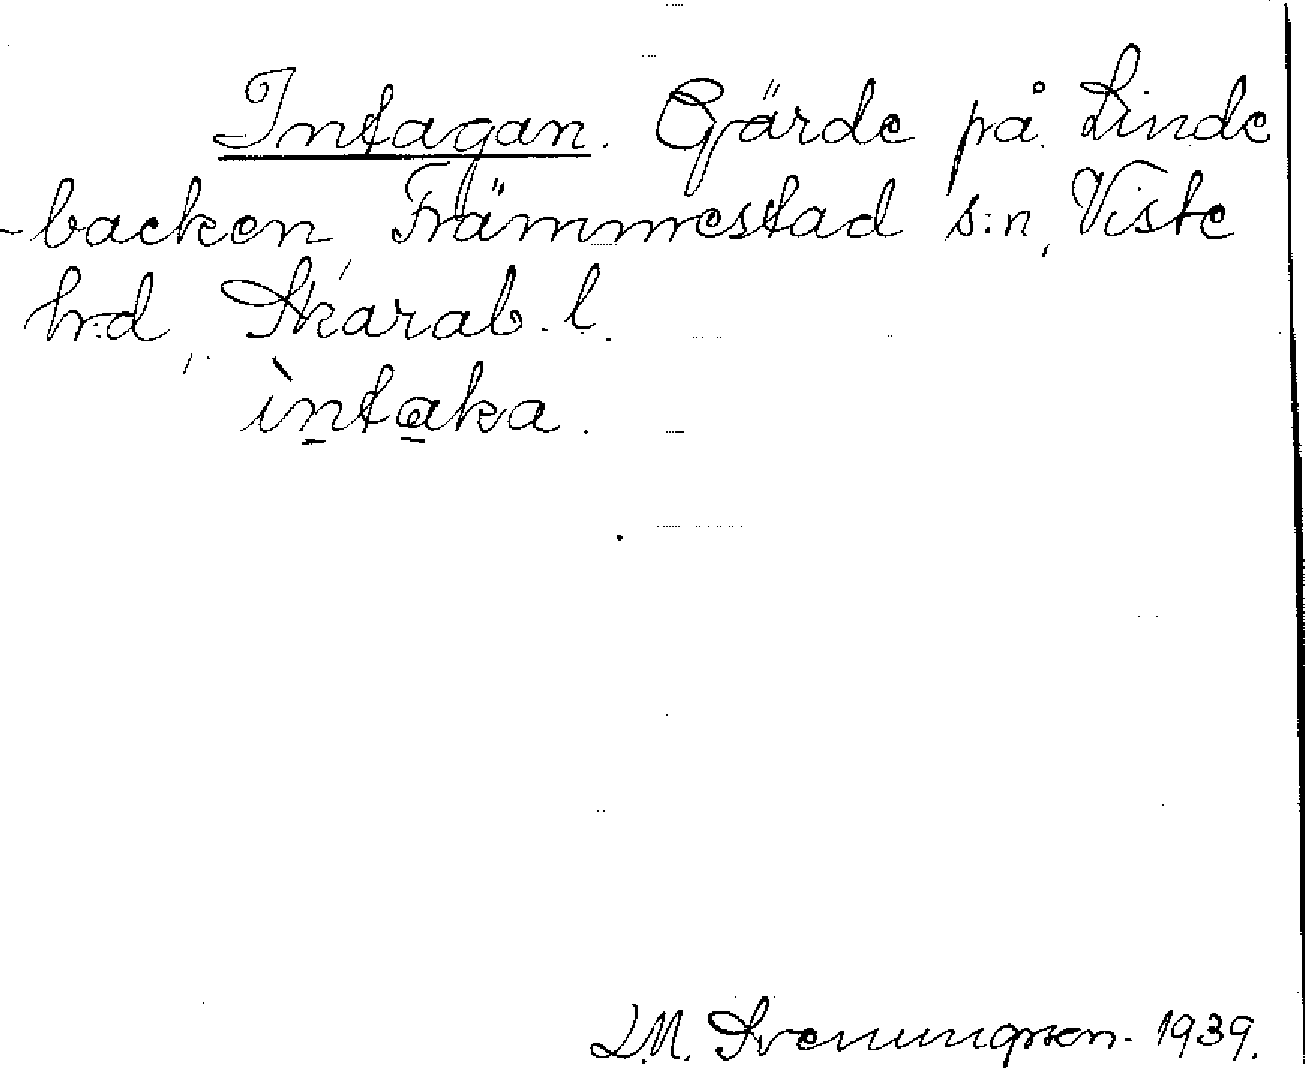 Intagan. Gärde på Linde
-backen, Främmestad s:n, Viste
h:d, Skarab. l.
ìntaka.
D.M. Svenungsson. 1939.